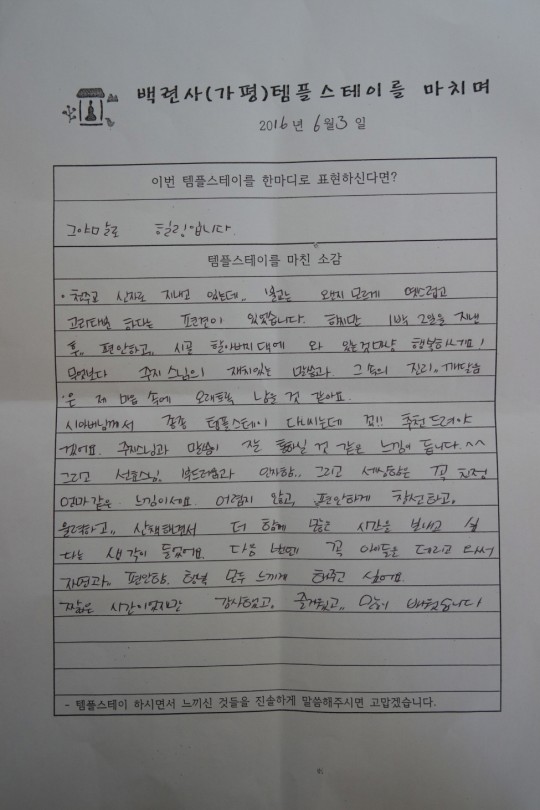 백련사(가평)템플스테이를 마치며
2016년 6월 3일
이번 템플스테이를 한마디로 표현하신다면?
그야말로 힐링입니다.
템플스테이를 마친 소감
· 천주교 신자로 지내고 있는데.. 불교는 왠지 모르게
고리타분 하다는 편견이 있었습니다. 하지만 1박 2일을 지낸
후.. 편안하고.. 시골 할아버지댁에 와 있는것마냥 행복하네요!
무엇보다 주지스님의 재치있는 말씀과 그 속의 진리.. 깨달음
은 제 마음 속에 오래토록 남을 것 같아요.
시아버님께서 종종 템플스테이 다니시는데 꼭!! 추천드려야
겠어요. 주지스님과 말씀이 잘 통하실 것 같은 느낌이 듭니다.^^
그리고 선효스님. 부드러움과 인자함.. 그리고 세심함은 꼭 친정
엄마같은 느낌이세요. 어렵지 않고, 편안하게 참선하고,
울력하고.. 산책하면서 더 함께 많은 시간을 보내고 싶
다는 생각이 들었어요. 다음 번엔 꼭 아이들을 데리고 와서
자연과.. 편안함. 행복 모두 느끼게 해주고 싶어요.
짧은 시간이었지만 감사했고, 즐거웠고.. 많이 배웠습니다!
- 템플스테이 하시면서 느끼신 것들을 진솔하게 말씀해주시면 고맙겠습니다.